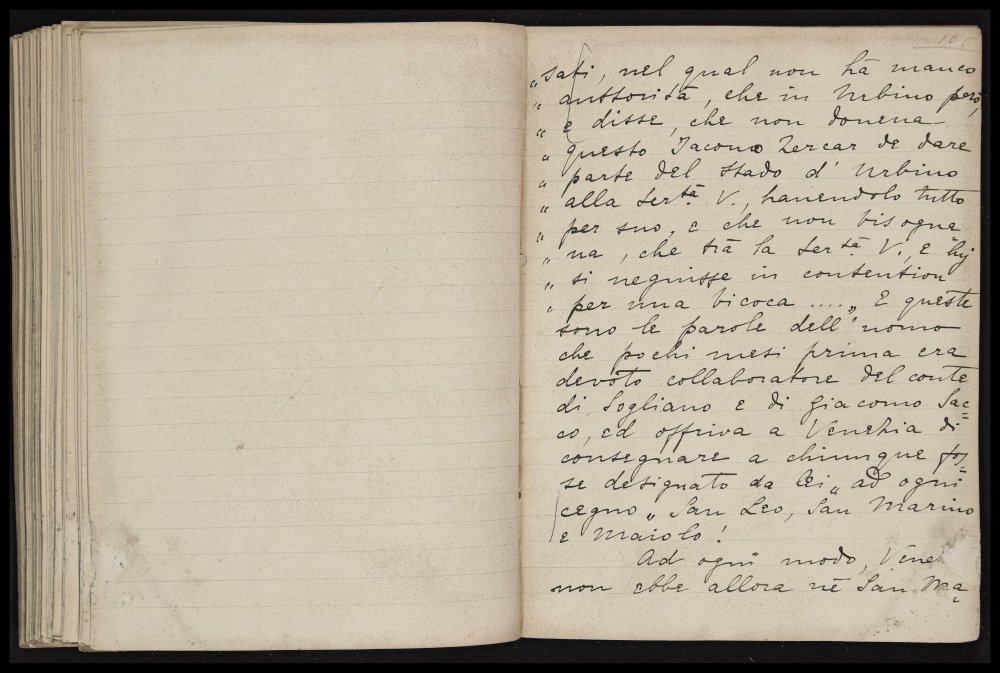 „ sati, nel qual non hà manco
„ auttorità, che in Urbino però,
„ e disse, che non doueua
„ questo Jacomo Zercar de dare
„ parte del Stado d' Urbino
„ alla Ser.tà V., hauendolo tutto
„ per suo, e che non bisogna
„ ua, che trà la Ser.tà V., e luj
„ si negnisse in contention
„ per una bicoca .... „ E queste
sono le parole dell' uomo
che pochi mesi prima era
devoto collaboratore del conte
di Sogliano e di Giacomo Sac=
co, ed offriva a Venezia di
consegnare a chiunque fos=
se designato da lei „ ad ogni
cegno „ San Leo, San Marino
e Maiolo!
Ad ogni modo,
non ebbe allora nè San Ma=